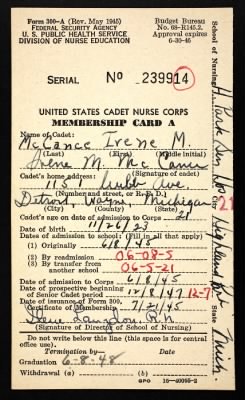 Form 300-A (Rev. May 1945)
FEDERAL SECURITY AGENCY
U. S. PUBLIC HEALTH SERVICE
DIVISION OF NURSE EDUCATION
Budget Bureau
No. 68-R145.2.
Approval expires
6-30-46
SERIAL No 239914
UNITED STATES CADET NURSE CORPS
MEMBERSHIP CARD A
Name of Cadet:
McCance Irene M.
(Last) (First) (Middle initial)
Irene M. McCance
(Signature of cadet)
1151 Ave.
(Number and street, or R. F. D.)
Detroit, Wayne, Michigan
(City) (County) (State)
Cadet's age on date of admission to Corps 21
Date of birth 11/26/23
Dates of admission to school: (Fill in all that apply)
(1) Originally 6/8/45
(2) By readmission 06-08-5
(3) By transfer from
another school 06-5-21
Date of admission to Corps 6/8/45
Date of prospective beginning
of Senior Cadet period 12/8/47 12-7
Date of issuance of Form 300,
Certificate of Membership 7/21/45
Langdon, R.N.
(Signature of Director of School of Nursing)
Do not write below this line (this space for central
office use).
Termination by— Date
Graduation 6-8-48
Withdrawal (a) (b)
GPO 16-40065-2
School of Nursing H. Park Gen. Hos.
21
Highland Pk.
State Mich.